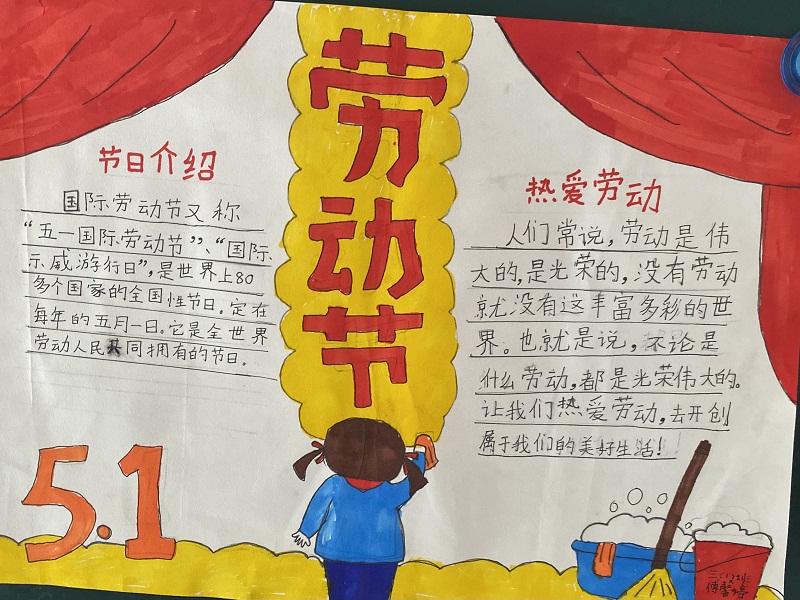 劳动节
节日介绍
国际劳动节又称
“五一国际劳动节”、“国际
示威游行日”,是世界上80
多个国家的全国性节日。定在
每年的五月一日。它是全世界
劳动人民共同拥有的节日。
5.1
热爱劳动
人们常说,劳动是伟
大的,是光荣的,没有劳动
就没有这丰富多彩的世
界。也就是说,不论是
什么劳动,都是光荣伟大的。
让我们热爱劳动,去开创
属于我们的美好生活!
三(1)班